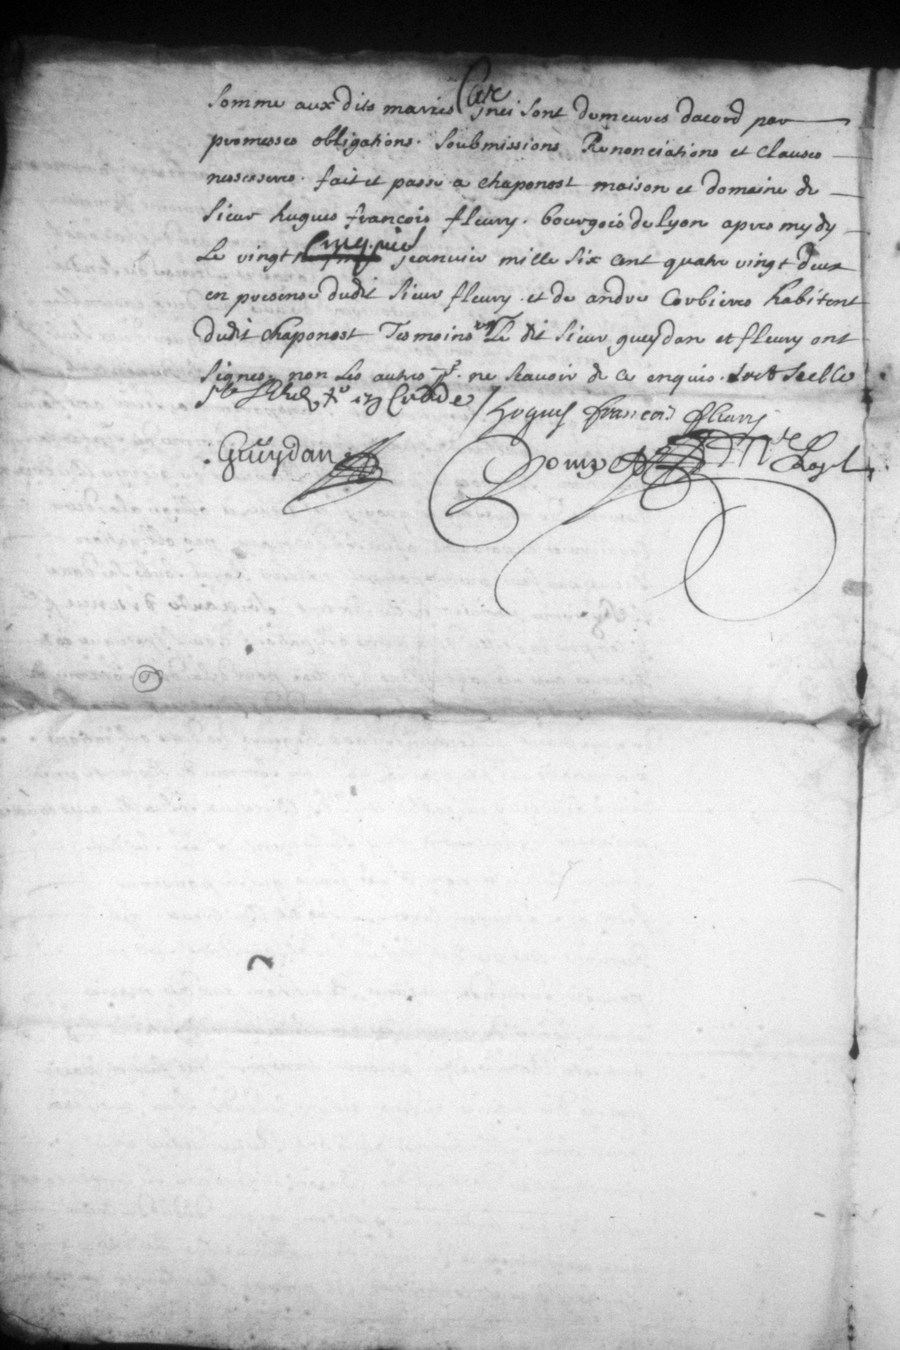 Somme aux dits mariés Car insi sont demeures dacord par
promesses obligations. Soubmissions Renonciations et clauses
necesseres. fait et passé a chaponost maison et domaine de
Sieur hugues françois fleury. bourgois de lyon apres mydy
Le vingt cinq.me jeanvier mille six cent quatre vingt deux
en presense dudit Sieur fleury. et de andre Corbieres habitent
dudit chaponost Tesmoins Le dit Sieur gueydan et fleury ont
Signes, non Les autres p. ne scavoir de ce enquis.
hugues françois fleury
Gueydan